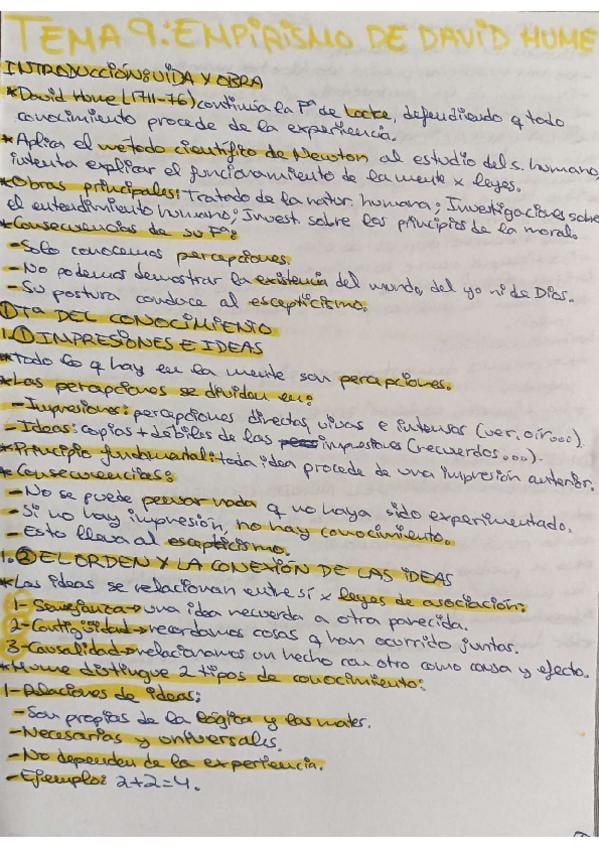 TEMA 9: EMPIRISMO DE DAVID HUME
INTRODUCCIÓN: VIDA Y OBRA
*David Hume (1711-76) continúa la Fª de Locke, defendiendo q todo
conocimiento procede de la experiencia.
*Aplica el método científico de Newton al estudio del s. humano,
intenta explicar el funcionamiento de la mente x leyes.
*Obras principales: Tratado de la natur. humana; Investigaciones sobre
el entendimiento humano; Invest. sobre los principios de la moral.
*Consecuencias de su Fª:
-Solo conocemos percepciones.
-No podemos demostrar la existencia del mundo, del yo ni de Dios.
-Su postura conduce al escepticismo.
① Tª DEL CONOCIMIENTO
1.① IMPRESIONES E IDEAS
*Todo lo q hay en la mente son percepciones.
*Las percepciones se dividen en:
-Impresiones: percepciones directas, vivas e intensas (ver, oír...).
-Ideas: copias + débiles de las impresiones (recuerdos...).
*Principio fundamental: toda idea procede de una impresión anterior.
*Consecuencias:
-No se puede pensar nada q no haya sido experimentado.
-Si no hay impresión, no hay conocimiento.
-Esto lleva al escepticismo.
1.② EL ORDEN Y LA CONEXIÓN DE LAS IDEAS
*Las ideas se relacionan entre sí x leyes de asociación:
1-Semejanza→una idea recuerda a otra parecida.
2-Contigüidad→recordamos cosas q han ocurrido juntas.
3-Causalidad→relacionamos un hecho con otro como causa y efecto.
*Hume distingue 2 tipos de conocimiento:
1-Relaciones de ideas:
-Son propias de la lógica y las mates.
-Necesarias y universales.
-No dependen de la experiencia.
-Ejemplo: 2+2=4.